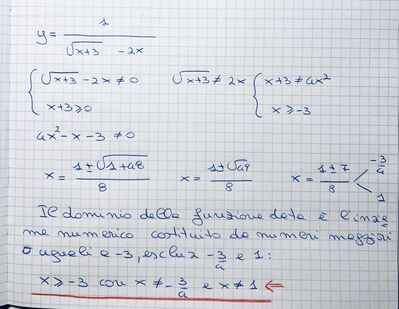 y = 1 / (√x+3 - 2x)
{ √x+3 - 2x ≠ 0   √x+3 ≠ 2x { x+3 ≠ 4x²
x+3 ≥ 0   x ≥ -3
4x² - x - 3 ≠ 0
x = (1 ± √1+48) / 8   x = (1 ± √49) / 8   x = (1 ± 7) / 8 < -3/4
1
Il dominio della funzione data è l'insie
me numerico costituito da numeri maggiori
o uguali a -3, esclusi -3/4 e 1:
x ≥ -3 con x ≠ -3/4 e x ≠ 1 ⇐